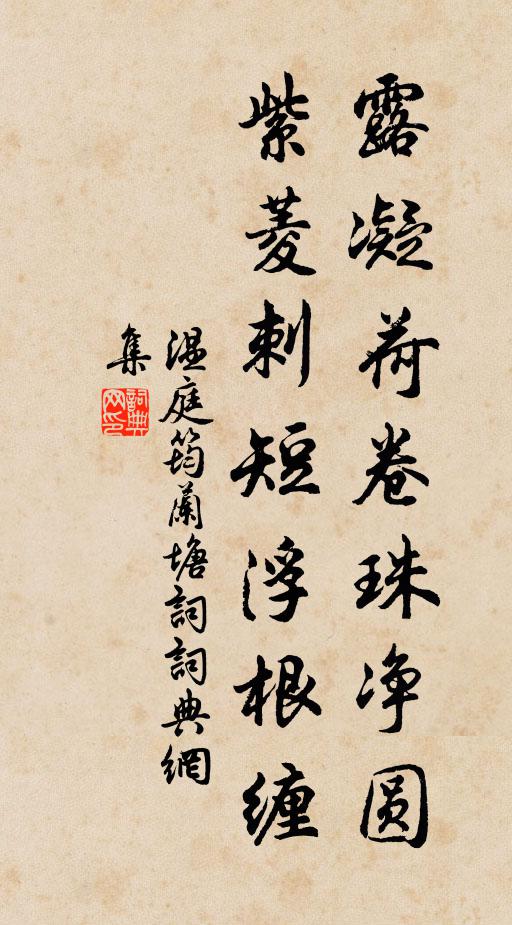 露凝荷卷珠净圆
紫菱刺短浮根缠
温庭筠蘭塘詞詞典網
集
詞典网印